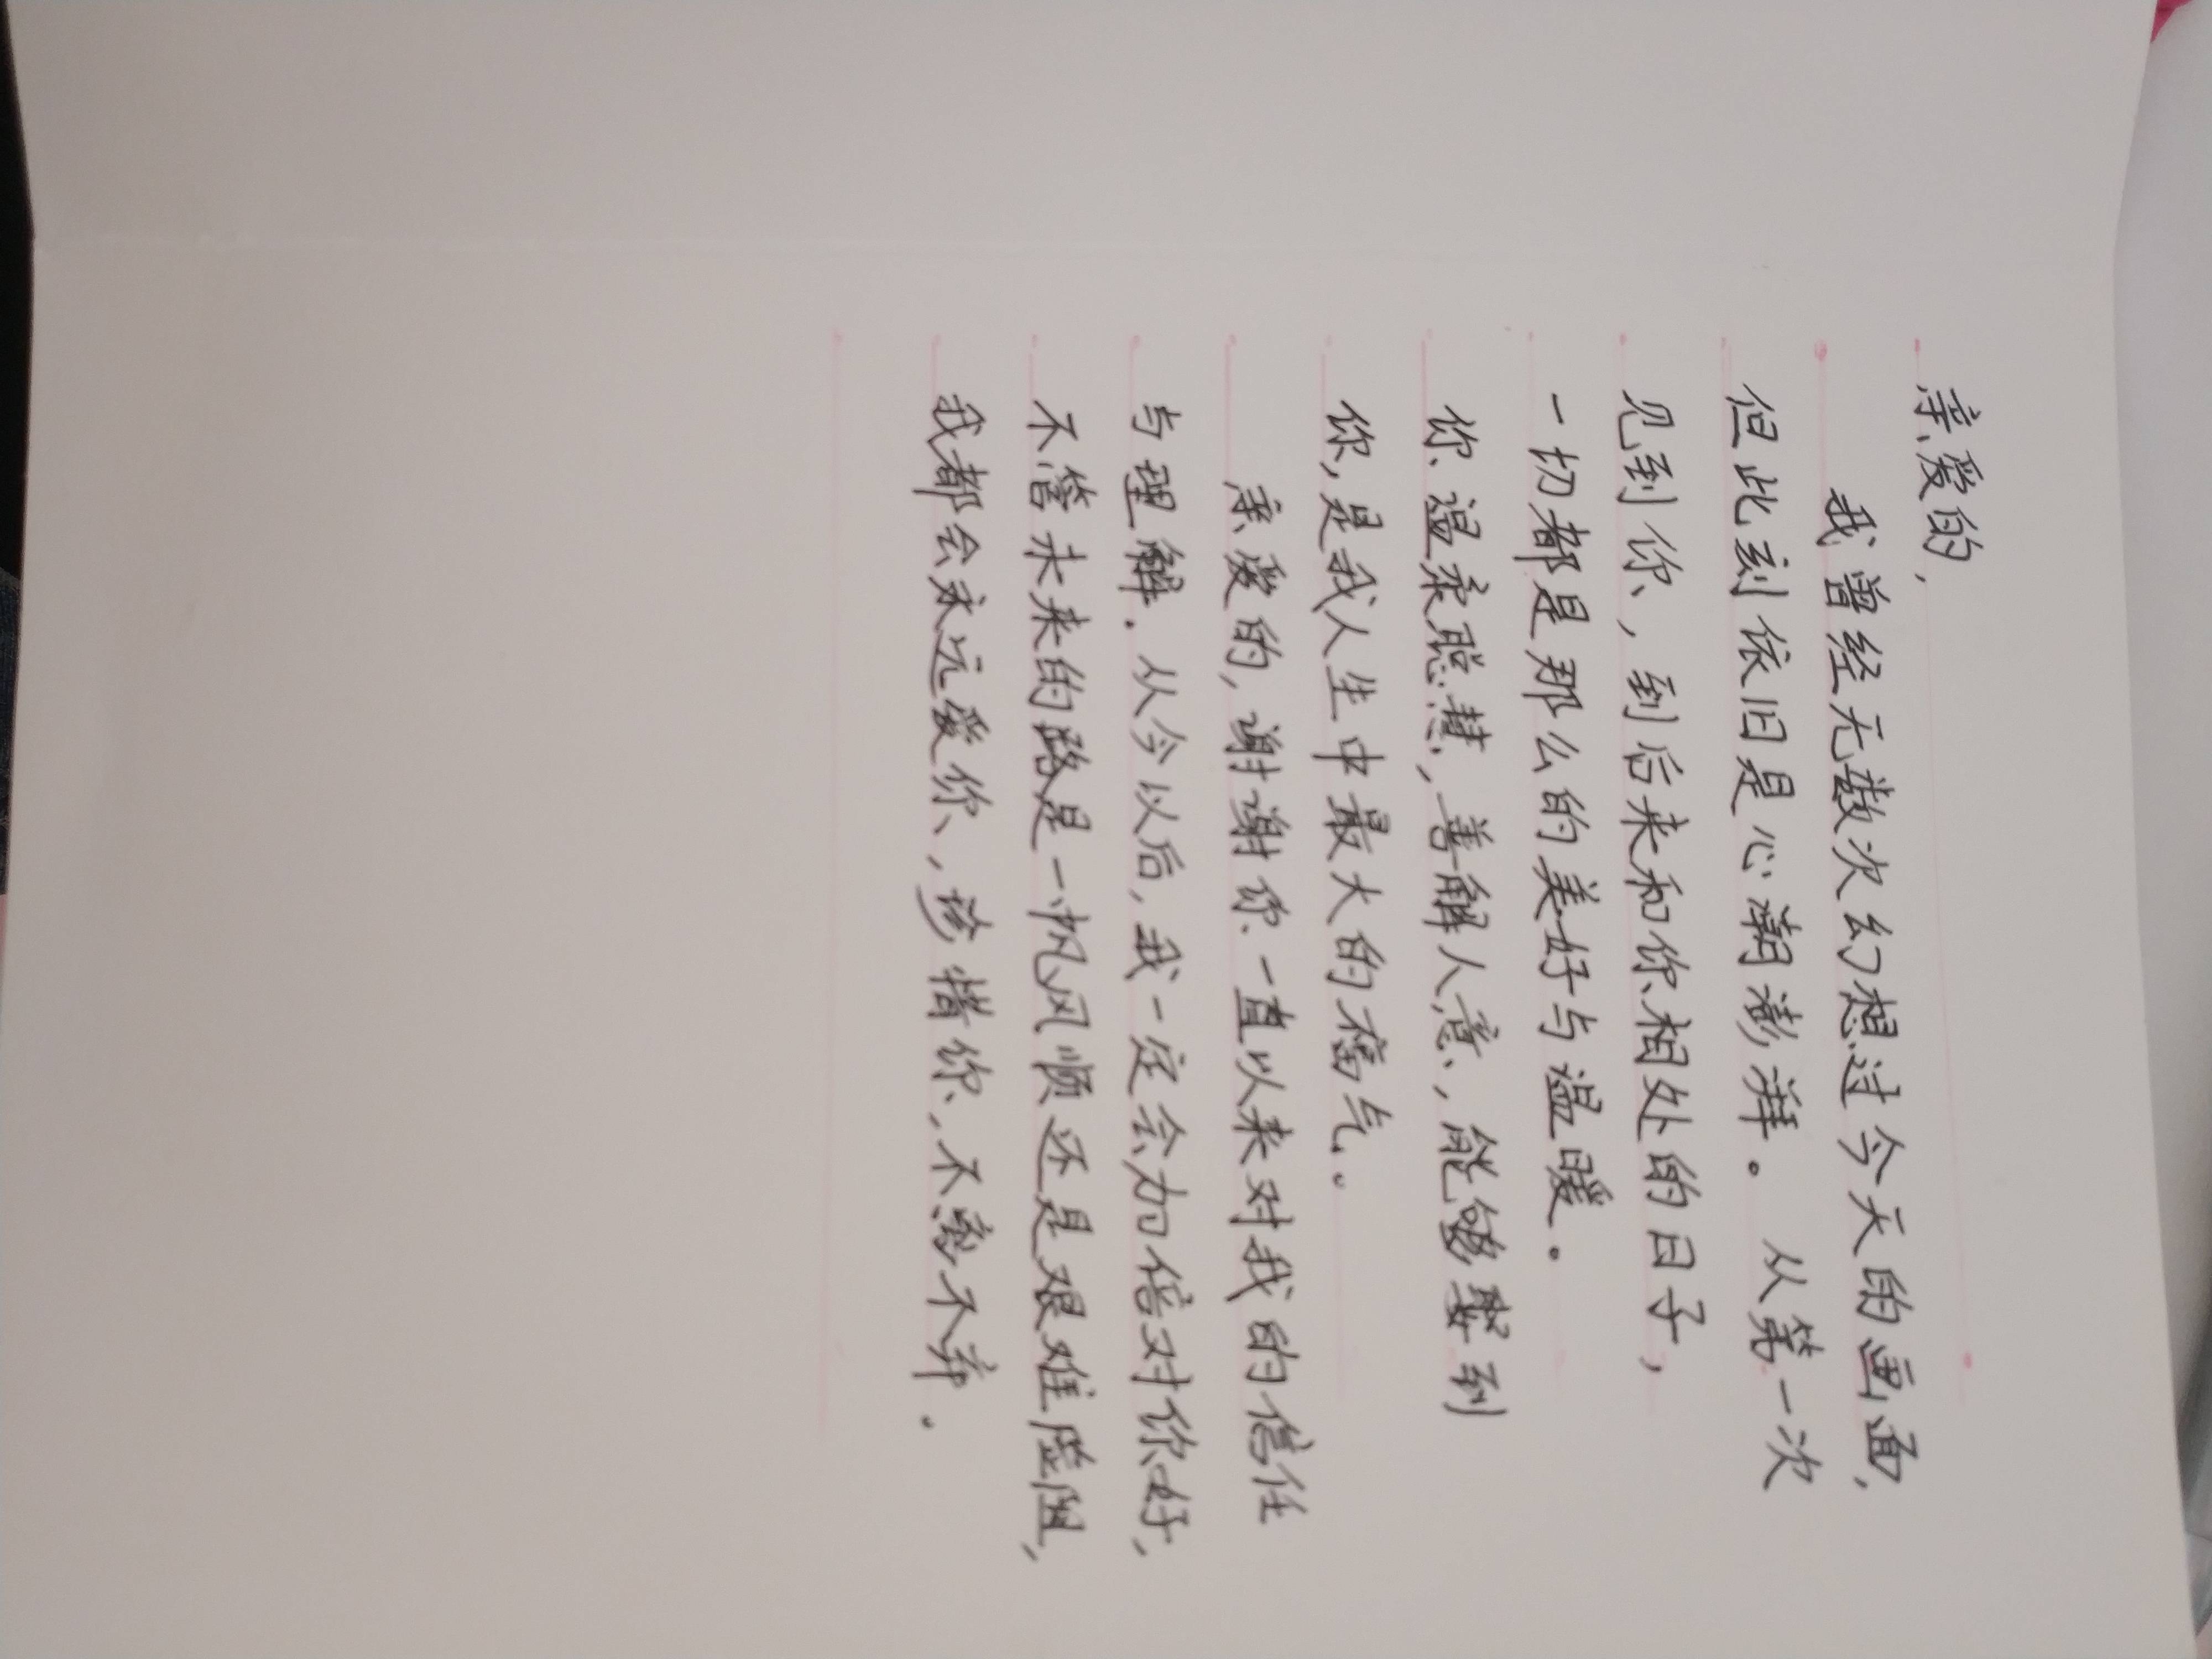 亲爱的,
我曾经无数次幻想过今天的画面,
但此刻依旧是心潮澎湃。从第一次
见到你,到后来和你相处的日子,
一切都是那么的美好与温暖。
你温柔聪慧,善解人意,能够娶到
你,是我人生中最大的福气。
亲爱的,谢谢你一直以来对我的信任
与理解.从今以后,我一定会加倍对你好,
不管未来的路是一帆风顺还是艰难险阻,
我都会永远爱你,珍惜你,不离不弃.